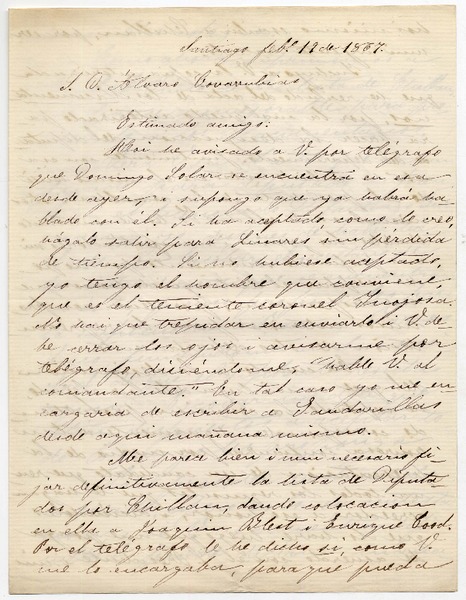 Santiago feb.º 12 de 1867.
S. D. Alvaro Covarrubias
Estimado amigo:
Hoi he avisado a V. por telégrafo
que Domingo Solar se encuentra en esa
desde ayer, i supongo que ya habrá ha-
blado con él. Si ha aceptado como lo creo,
hágalo salir para Linares sin pérdida
de tiempo. Si no hubiese aceptado,
yo tengo el hombre que conviene,
que es el teniente coronel
No hai que trepidar en enviarlo i V. de-
be cerrar los ojos i avisarme por
telégrafo, diciéndome, "hable V. al
comandante." En tal caso yo me en-
cargaria de escribir a Gandarillas
desde aqui mañana mismo.
Me parece bien i mui necesario fi-
jar definitivamente la lista de Diputa-
dos por Chillan, dando colocacion
en ella a Joaquin Blest i Enrique Cood.
Por el telégrafo le he dicho si, como V.
me lo encargaba, para que pueda